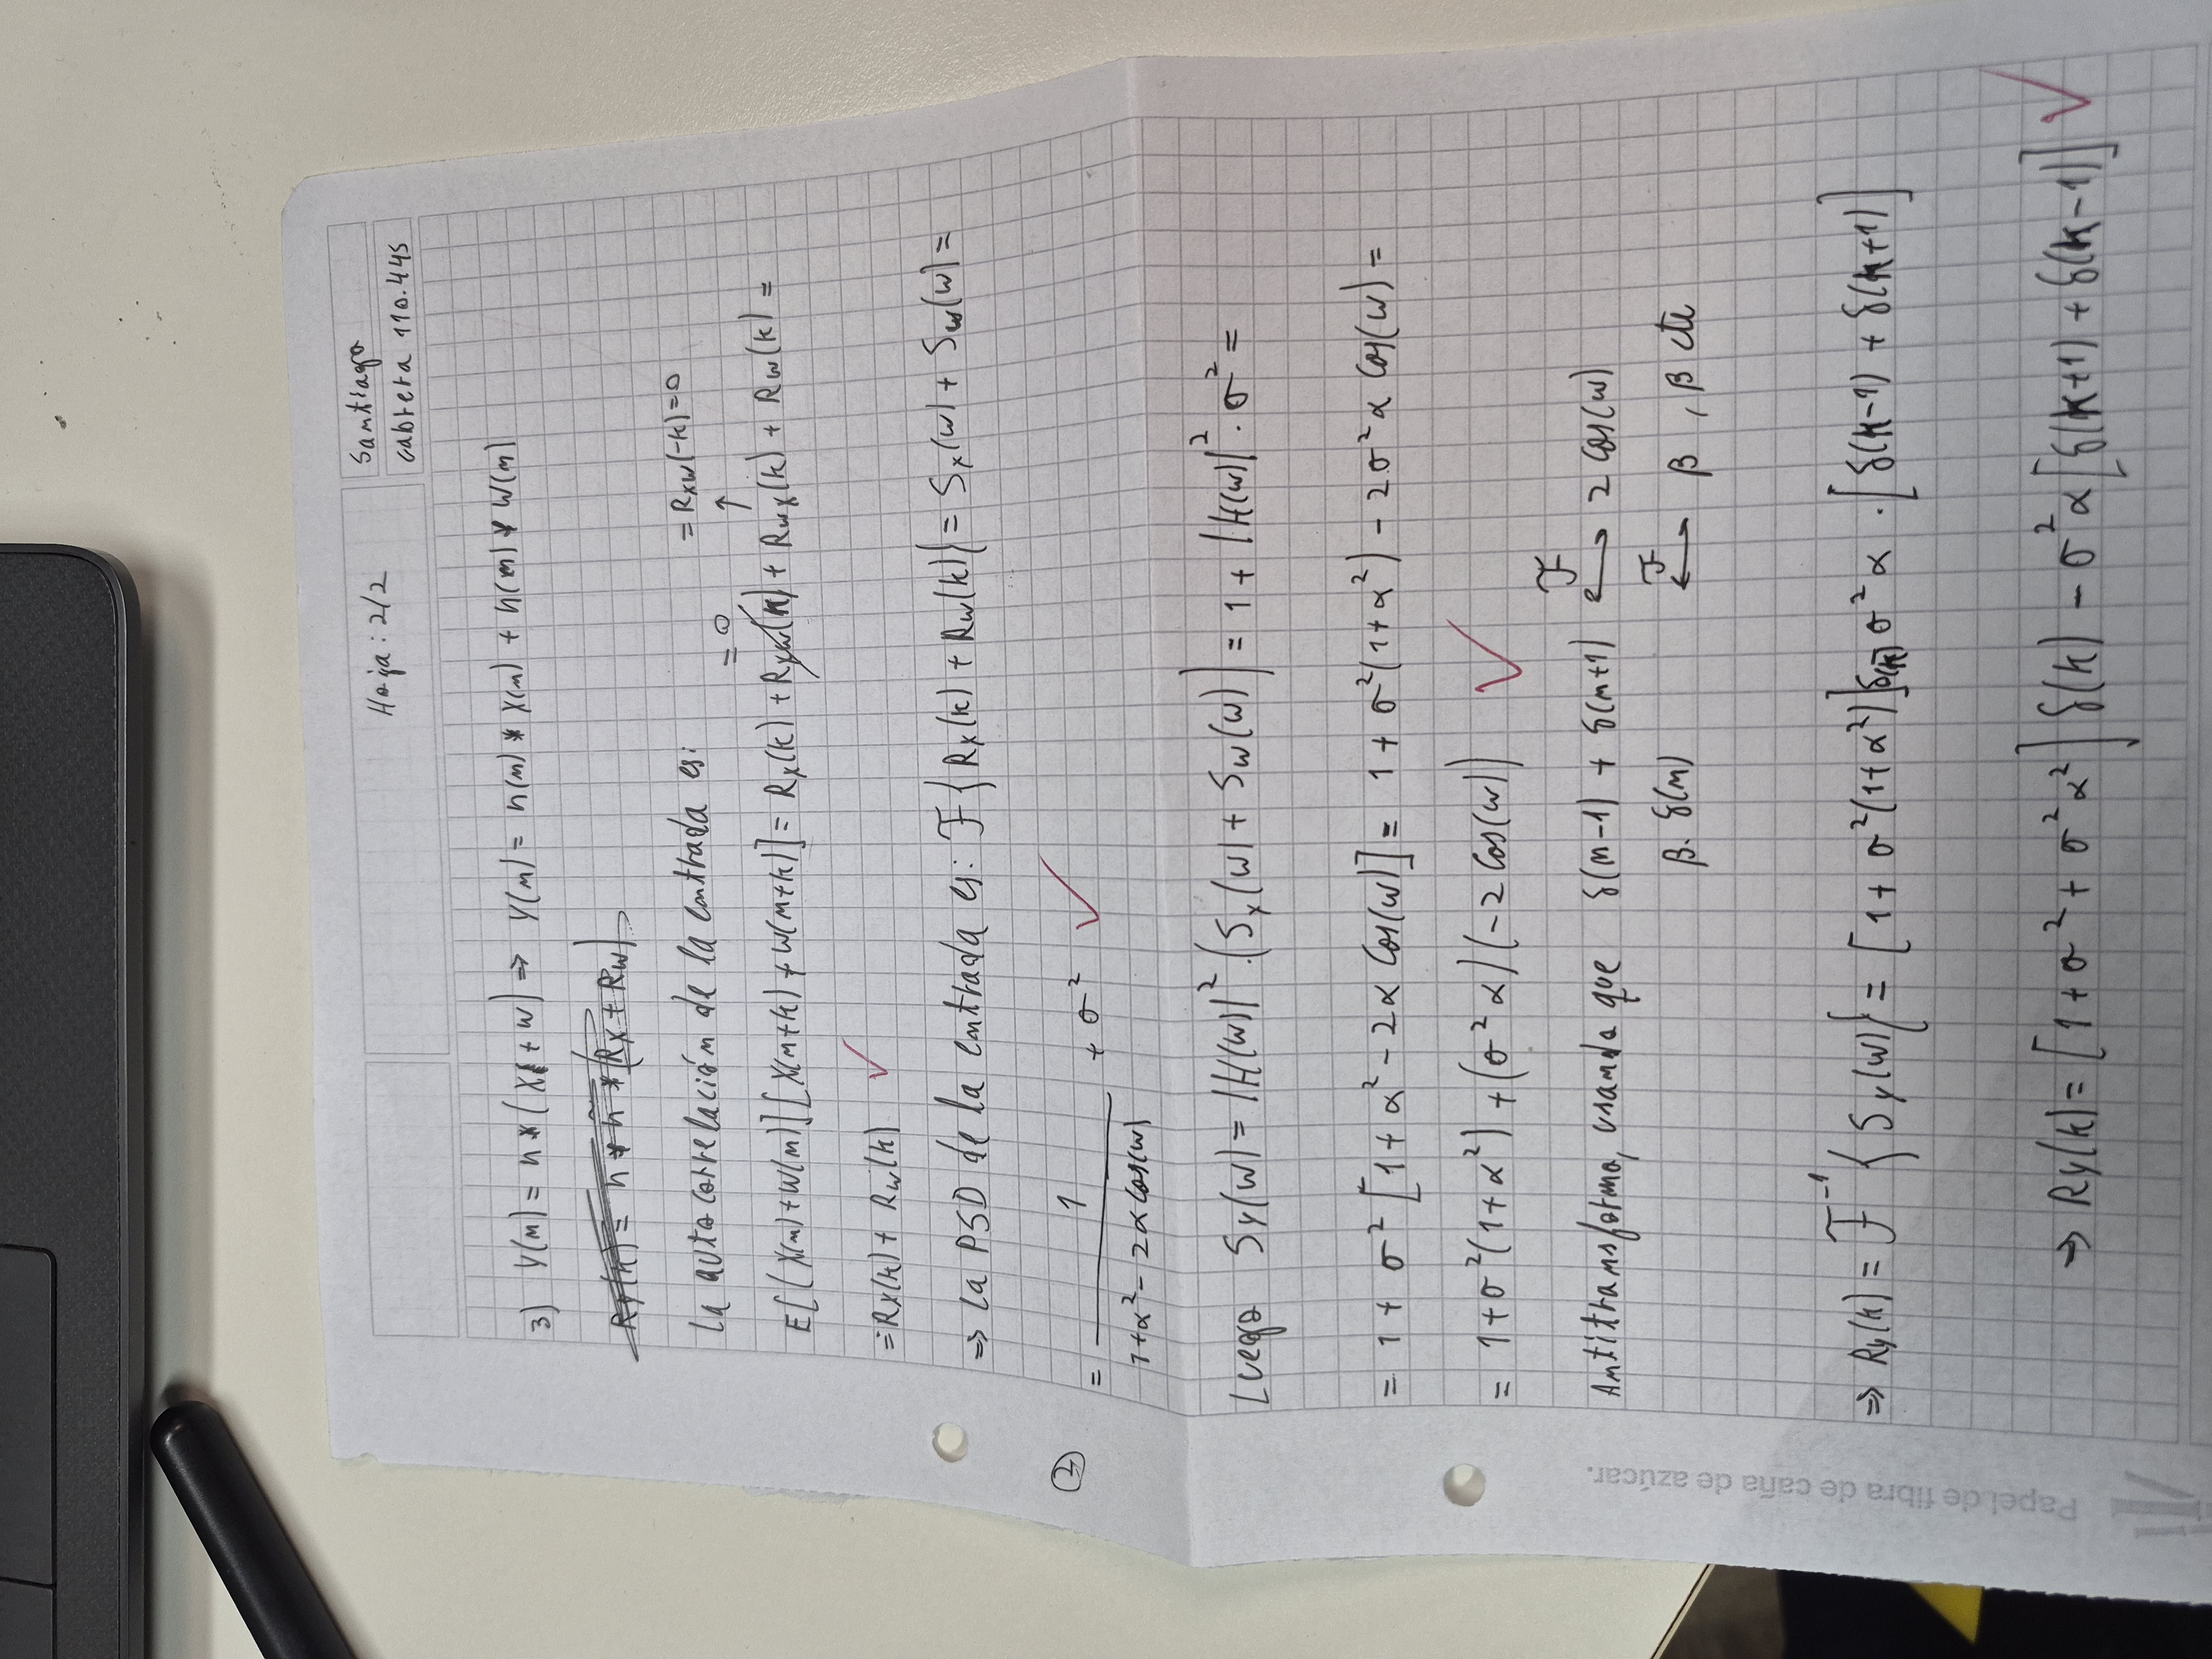 Hoja: 2/2
Santiago
Cabrera 110.445
3) Y(n) = h * (X + W) ⇒ Y(n) = h(n) * X(n) + h(n) * W(n)
Ry(k) = h * h̃ * (Rx + Rw)
La autocorrelación de la entrada es:
= Rxw(-k) = 0
= 0 ↑
E[(X(n)+W(n)][X(n+k) + W(n+k)] = Rx(k) + Rxw(k) + Rwx(k) + Rw(k) =
= Rx(k) + Rw(k) ✓
⇒ La PSD de la entrada es: F{Rx(k) + Rw(k)} = Sx(w) + Sw(w) =
②
= 1 / (1+α² - 2α cos(w)) + σ² ✓
Luego Sy(w) = |H(w)|² · (Sx(w) + Sw(w)) = 1 + |H(w)|² · σ² =
= 1 + σ² [1 + α² - 2α cos(w)] = 1 + σ²(1+α²) - 2σ²α cos(w) =
= 1 + σ²(1+α²) + (σ²α)(-2 cos(w)) ✓
Antitransformo, usando que δ(n-1) + δ(n+1) F↔ 2 cos(w)
β · δ(n) F↔ β , β cte
⇒ Ry(k) = F⁻¹{Sy(w)} = [1 + σ²(1+α²)]δ(k) - σ²α · [δ(k-1) + δ(k+1)]
→ Ry(k) = [1 + σ² + σ²α²] δ(k) - σ²α [δ(k+1) + δ(k-1)] ✓
Papel de fibra de caña de azúcar.